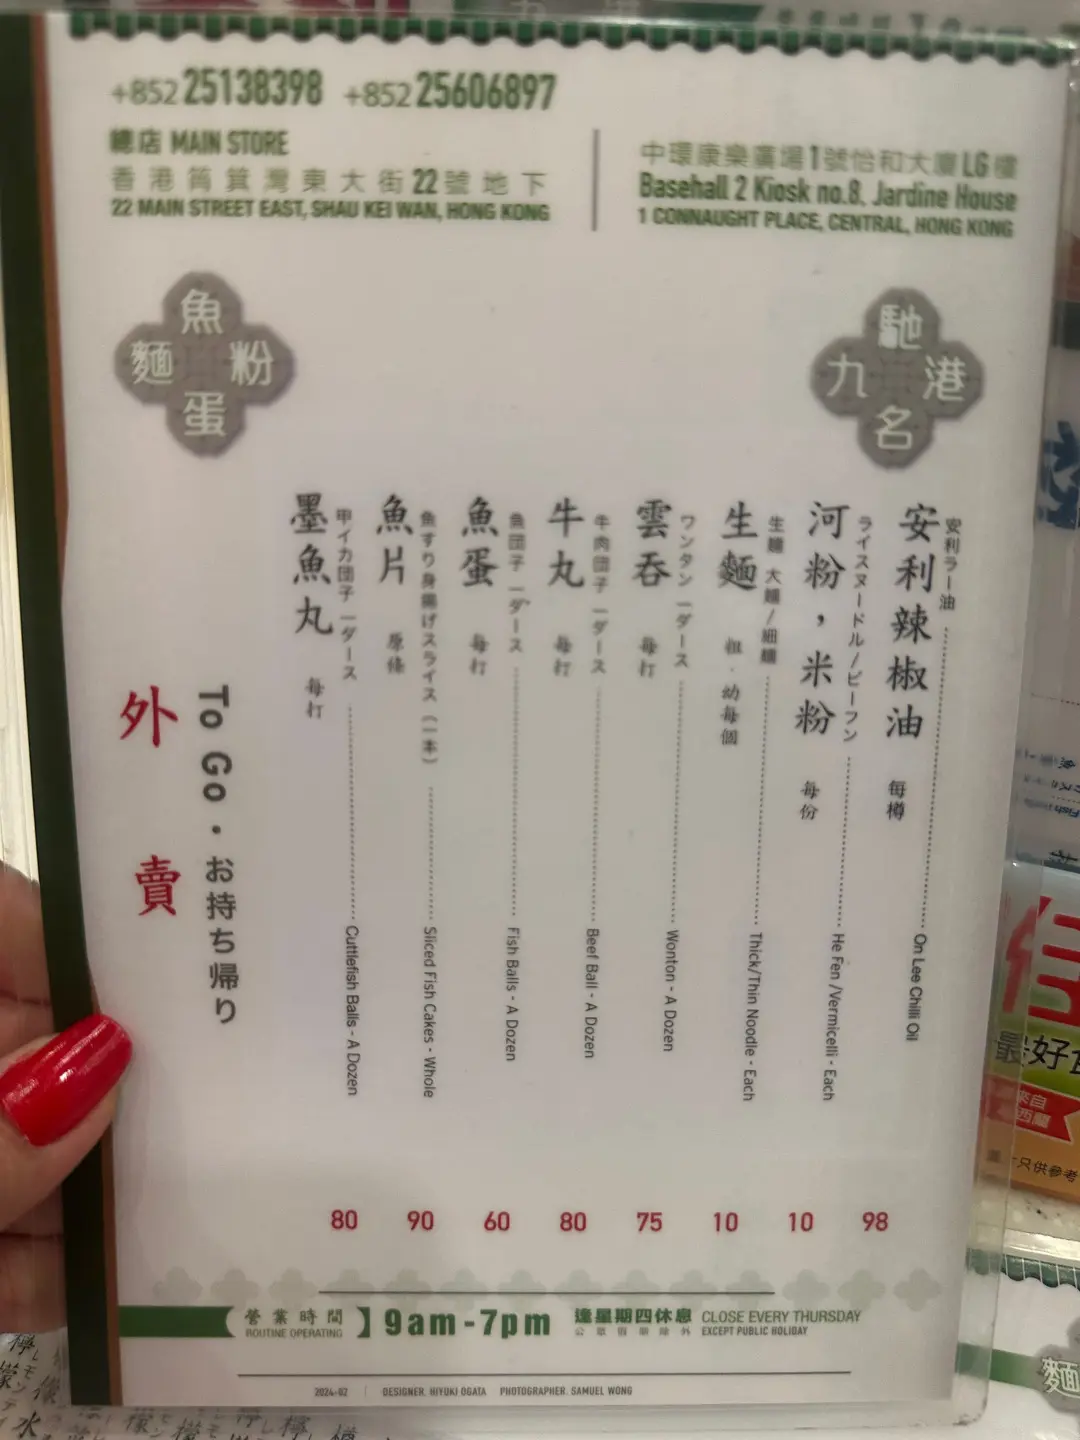 +852 25138398 +852 25606897
總店 MAIN STORE
香港筲箕灣東大街22號地下
22 MAIN STREET EAST, SHAU KEI WAN, HONG KONG
中環康樂廣場1號怡和大廈LG樓
Basehall 2 Kiosk no.8, Jardine House
1 CONNAUGHT PLACE, CENTRAL, HONG KONG
魚
麵 粉
蛋
馳
九 港
名
安利ラー油 On Lee Chilli Oil
安利辣椒油 每樽
98
ライスヌードル/ビーフン He Fen /Vermicelli - Each
河粉,米粉 每份
10
生麺 大麺/細麺 Thick/Thin Noodle - Each
生麵 粗·幼每個
10
ワンタン 一ダース Wonton - A Dozen
雲吞 每打
75
牛肉団子 一ダース Beef Ball - A Dozen
牛丸 每打
80
魚団子 一ダース Fish Balls - A Dozen
魚蛋 每打
60
魚すり身揚げスライス (一本) Sliced Fish Cakes - Whole
魚片 原條
90
甲イカ団子 一ダース Cuttlefish Balls - A Dozen
墨魚丸 每打
80
To Go・お持ち帰り
外賣
營業時間
ROUTINE OPERATING
9am - 7pm
逢星期四休息 CLOSE EVERY THURSDAY
公眾假期除外 EXCEPT PUBLIC HOLIDAY
2024-02 DESIGNER. HIYUKI OGATA PHOTOGRAPHER. SAMUEL WONG
最好
來自
只供參考
麵